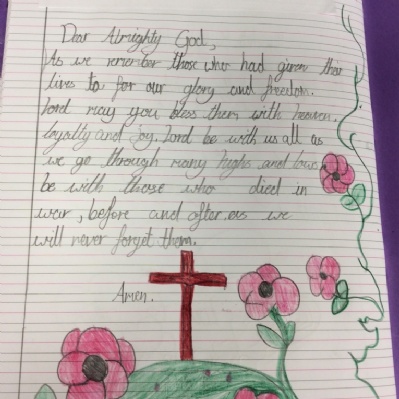 Dear Almighty God,
As we remember those who had given their
lives to for our glory and freedom.
Lord may you bless them with heaven,
loyalty and joy. Lord be with us all as
we go through many highs and lows,
be with those who died in
war, before and after as we
will never forget them.
Amen.